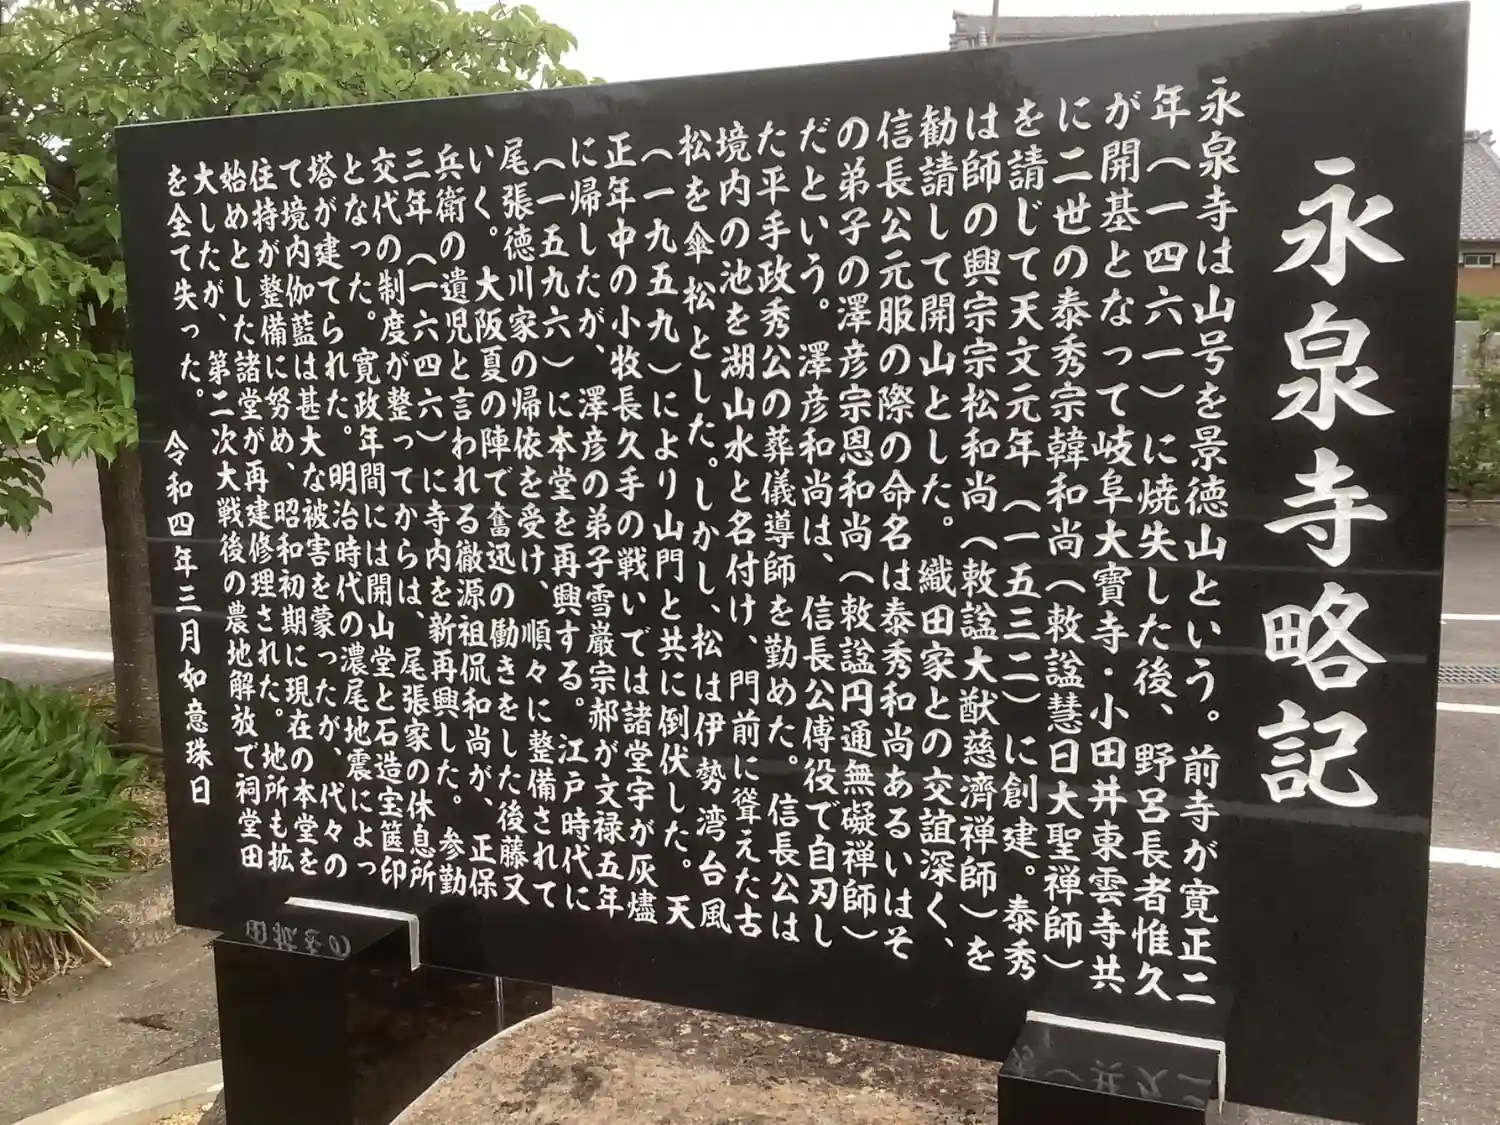 永泉寺略記
永泉寺は山号を景徳山という。前寺が寛正二
年(一四六一)に焼失した後、野呂長者惟久
が開基となって岐阜大寶寺・小田井東雲寺共
に二世の泰秀宗韓和尚(敕謚慧日大聖禅師)
を請じて天文元年(一五三二)に創建。泰秀
は師の興宗宗松和尚(敕謚大猷慈濟禅師)を
勧請して開山とした。織田家との交誼深く、
信長公元服の際の命名は泰秀和尚あるいはそ
の弟子の澤彦宗恩和尚(敕謚円通無礙禅師)
だという。澤彦和尚は、信長公傅役で自刃し
た平手政秀公の葬儀導師を勤めた。信長公は
境内の池を湖山水と名付け、門前に聳えた古
松を傘松とした。しかし、松は伊勢湾台風
(一九五九)により山門と共に倒伏した。天
正年中の小牧長久手の戦いでは諸堂宇が灰燼
に帰したが、澤彦の弟子雪巌宗郝が文禄五年
(一五九六)に本堂を再興する。江戸時代に
尾張徳川家の帰依を受け、順々に整備されて
いく。大阪夏の陣で奮迅の働きをした後藤又
兵衛の遺児と言われる徹源祖侃和尚が、正保
三年(一六四六)に寺内を新再興した。参勤
交代の制度が整ってからは、尾張家の休息所
となった。寛政年間には開山堂と石造宝篋印
塔が建てられた。明治時代の濃尾地震によっ
て境内伽藍は甚大な被害を蒙ったが、代々の
住持が整備に努め、昭和初期に現在の本堂を
始めとした諸堂が再建修理された。地所も拡
大したが、第二次大戦後の農地解放で祠堂田
を全て失った。令和四年三月如意珠日